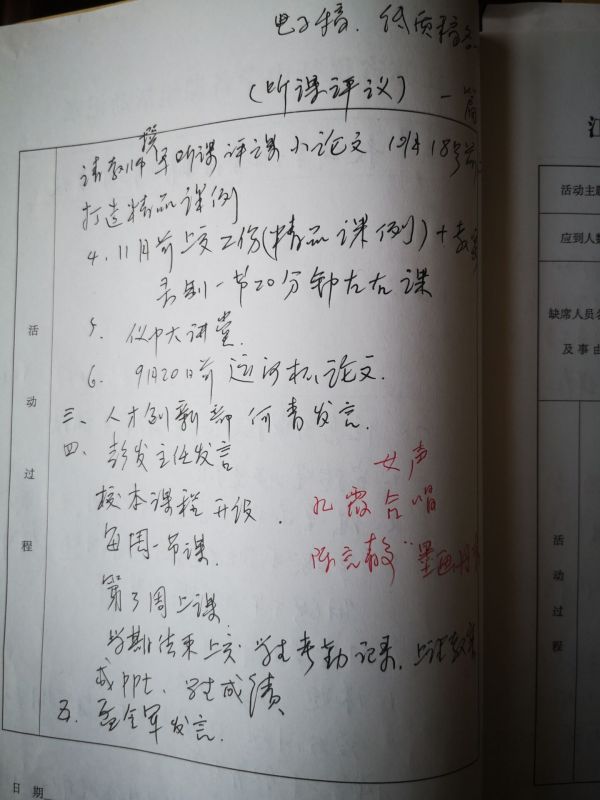 电子稿、纸质稿各
(听课评议) 一篇
请教师撰写听课评课小论文 12月18号前
打造精品课例
4、11月前上交工作(精品课例)+教案
录制一节20分钟左右课
5、仪中大讲堂
6、9月20日前运河杯论文.
三、人才创新部 何青发言.
四、彭发主任发言
女声
校本课程开设.
合唱
每周一节课.
第3周上课
学期结束上交 学生考勤记录,上课教案
或ppt、学生成绩
五、孟全军发言.
活动过程
日 期
江
活动主题
应到人数
缺席人员名
及事由
活动过程